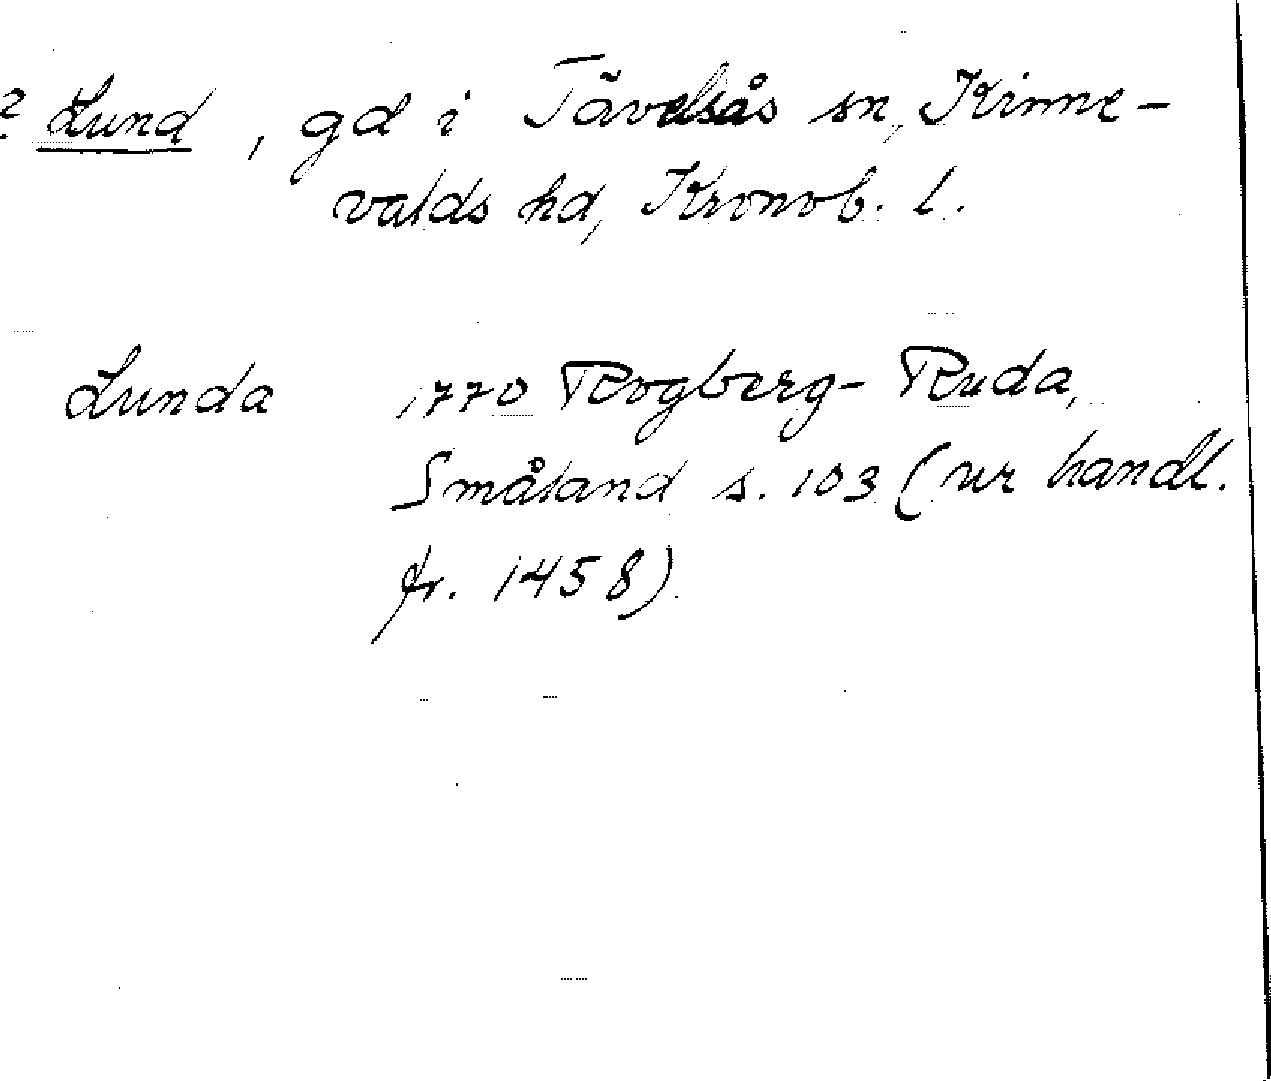 ? Lund, gd i Tävelsås sn, Kinne-
valds hd, Kronob. l.
Lunda 1770 Rogberg-Ruda,
Småland s. 103 (ur handl.
fr. 1458)